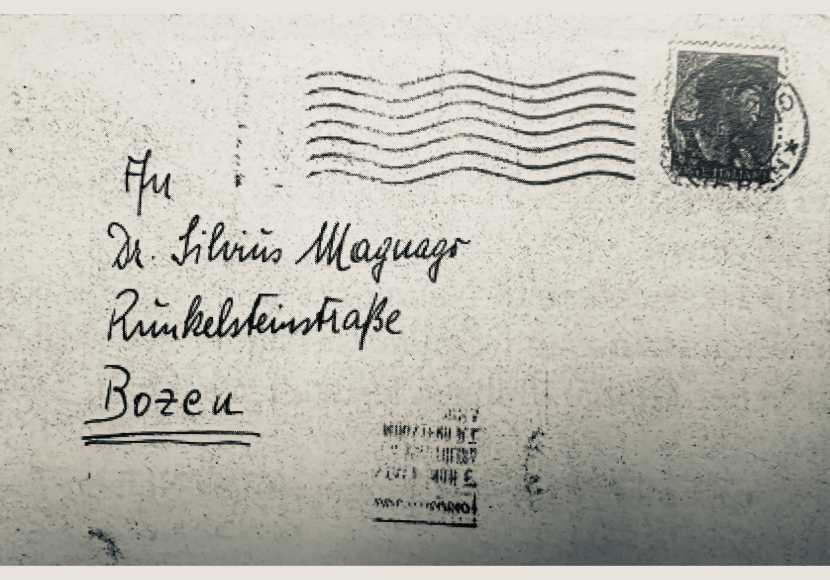 An
Dr. Silvius Magnago
Runkelsteinstraße
Bozen